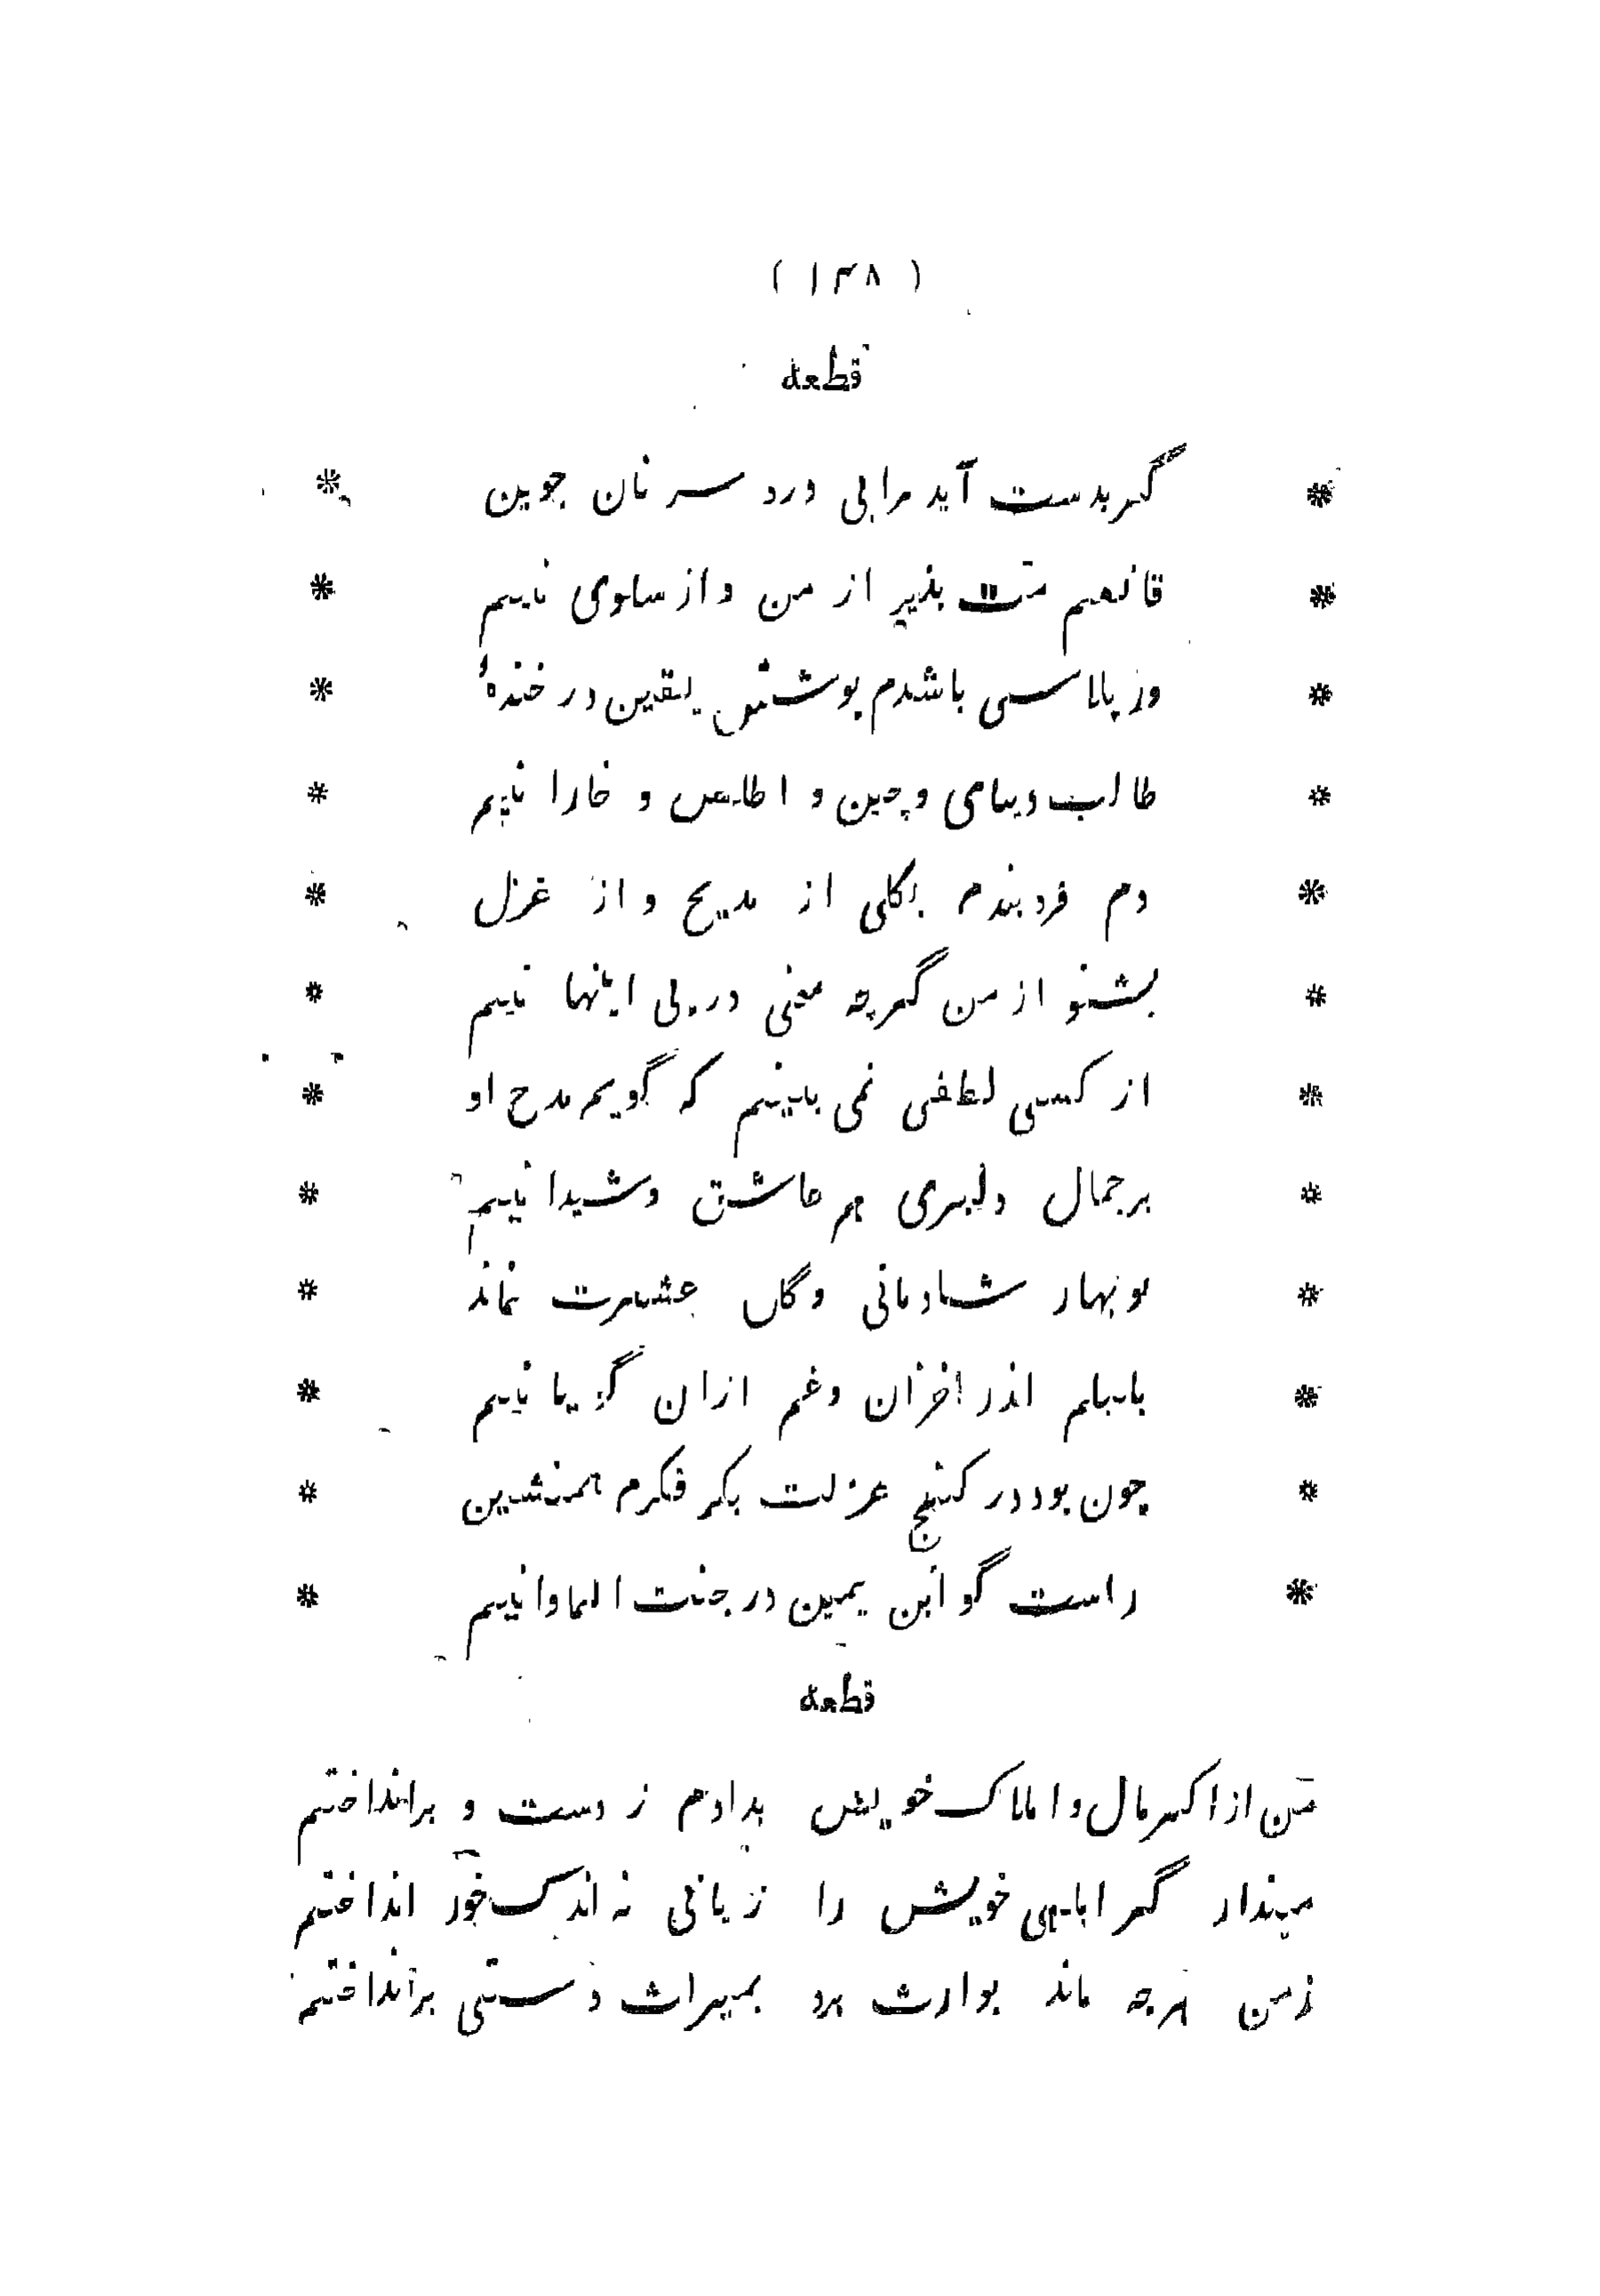 ( ۱۴۸ )
قطعه
* گر بدست آید مرا بی درد سر نان جوین *
* قانعم منت پذیر از من و از سلوی نیم *
* ور پلاسی باشدم پوشش یقین در خندهٔ *
* طالب دیبای و چین و اطلس و خارا نیم *
* دم فرو بندم بکلی از مدیح و از غزل *
* بشنو از من گرچه معنی در پی اینها نیم *
* از کسی لطفی نمی بینم که گویم مدح او *
* بر جمال دلبری هم عاشق و شیدا نیم *
* نو بهار شادمانی و گل عشرت نماند *
* بلبلم اندر خزان و غم ازان گویا نیم *
* چون بود در کنج عزلت بکر فکرم همنشین *
* راست گو ابن یمین در جنت الماوا نیم *
قطعه
من از اکثر مال و املاک خویش بدادم ز دست و برانداختم
مپندار گر ابلهی خویش را زیانی نه اندک خور انداختم
ز من هرچه ماند بوارث برد بمیراث دستی برانداختم